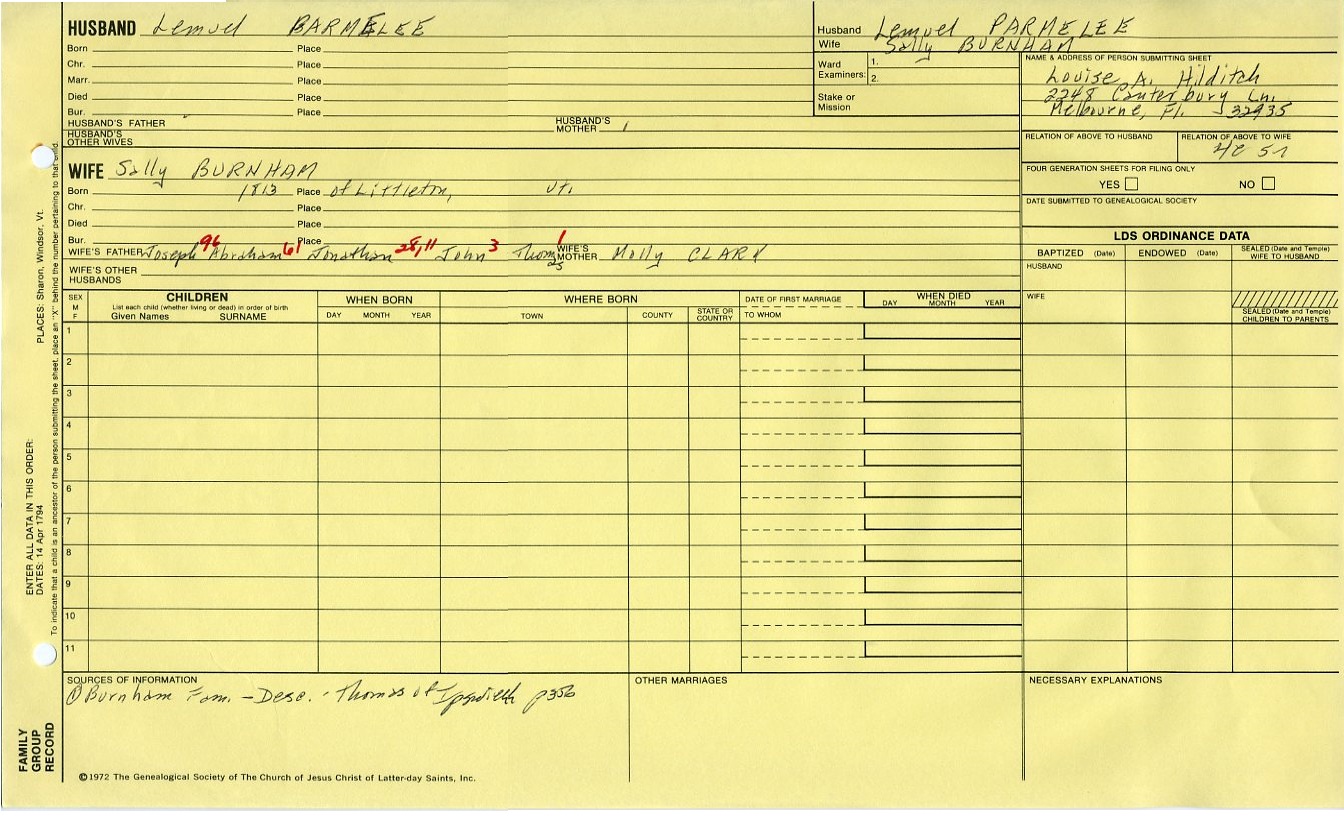 HUSBAND Lemuel BARMELEE
Born Place
Chr. Place
Marr. Place
Died Place
Bur. Place
HUSBAND'S FATHER HUSBAND'S MOTHER
HUSBAND'S OTHER WIVES
Husband Lemuel PARMELEE
Wife Sally BURNHAM
Ward Examiners: 1.
2.
Stake or Mission
NAME & ADDRESS OF PERSON SUBMITTING SHEET
Louise A. Hilditch
2248 Canterbury Ln.
Melbourne, Fl. 32935
RELATION OF ABOVE TO HUSBAND RELATION OF ABOVE TO WIFE
FOUR GENERATION SHEETS FOR FILING ONLY
YES NO
DATE SUBMITTED TO GENEALOGICAL SOCIETY
WIFE Sally BURNHAM
Born 1813 Place of Littleton, Vt.
Chr. Place
Died Place
Bur. Place
WIFE'S FATHER Joseph 96 Abraham 61 Jonathan 28,11 John 3 Thom 1 WIFE'S MOTHER Molly CLARK
WIFE'S OTHER HUSBANDS
LDS ORDINANCE DATA
BAPTIZED (Date) ENDOWED (Date) SEALED (Date and Temple) WIFE TO HUSBAND
HUSBAND
WIFE
SEALED (Date and Temple) CHILDREN TO PARENTS
SEX M F
CHILDREN
List each child (whether living or dead) in order of birth
Given Names SURNAME
WHEN BORN
DAY MONTH YEAR
WHERE BORN
TOWN COUNTY STATE OR COUNTRY
DATE OF FIRST MARRIAGE
TO WHOM
WHEN DIED
DAY MONTH YEAR
1
2
3
4
5
6
7
8
9
10
11
SOURCES OF INFORMATION
① Burnham Fam. - Desc. - Thomas of Ipswich p356
OTHER MARRIAGES
NECESSARY EXPLANATIONS
©1972 The Genealogical Society of The Church of Jesus Christ of Latter-day Saints, Inc.
FAMILY GROUP RECORD
ENTER ALL DATA IN THIS ORDER:
DATES: 14 Apr 1794 PLACES: Sharon, Windsor, Vt.
To indicate that a child is an ancestor of the person submitting the sheet, place an "X" behind the number pertaining to that child.